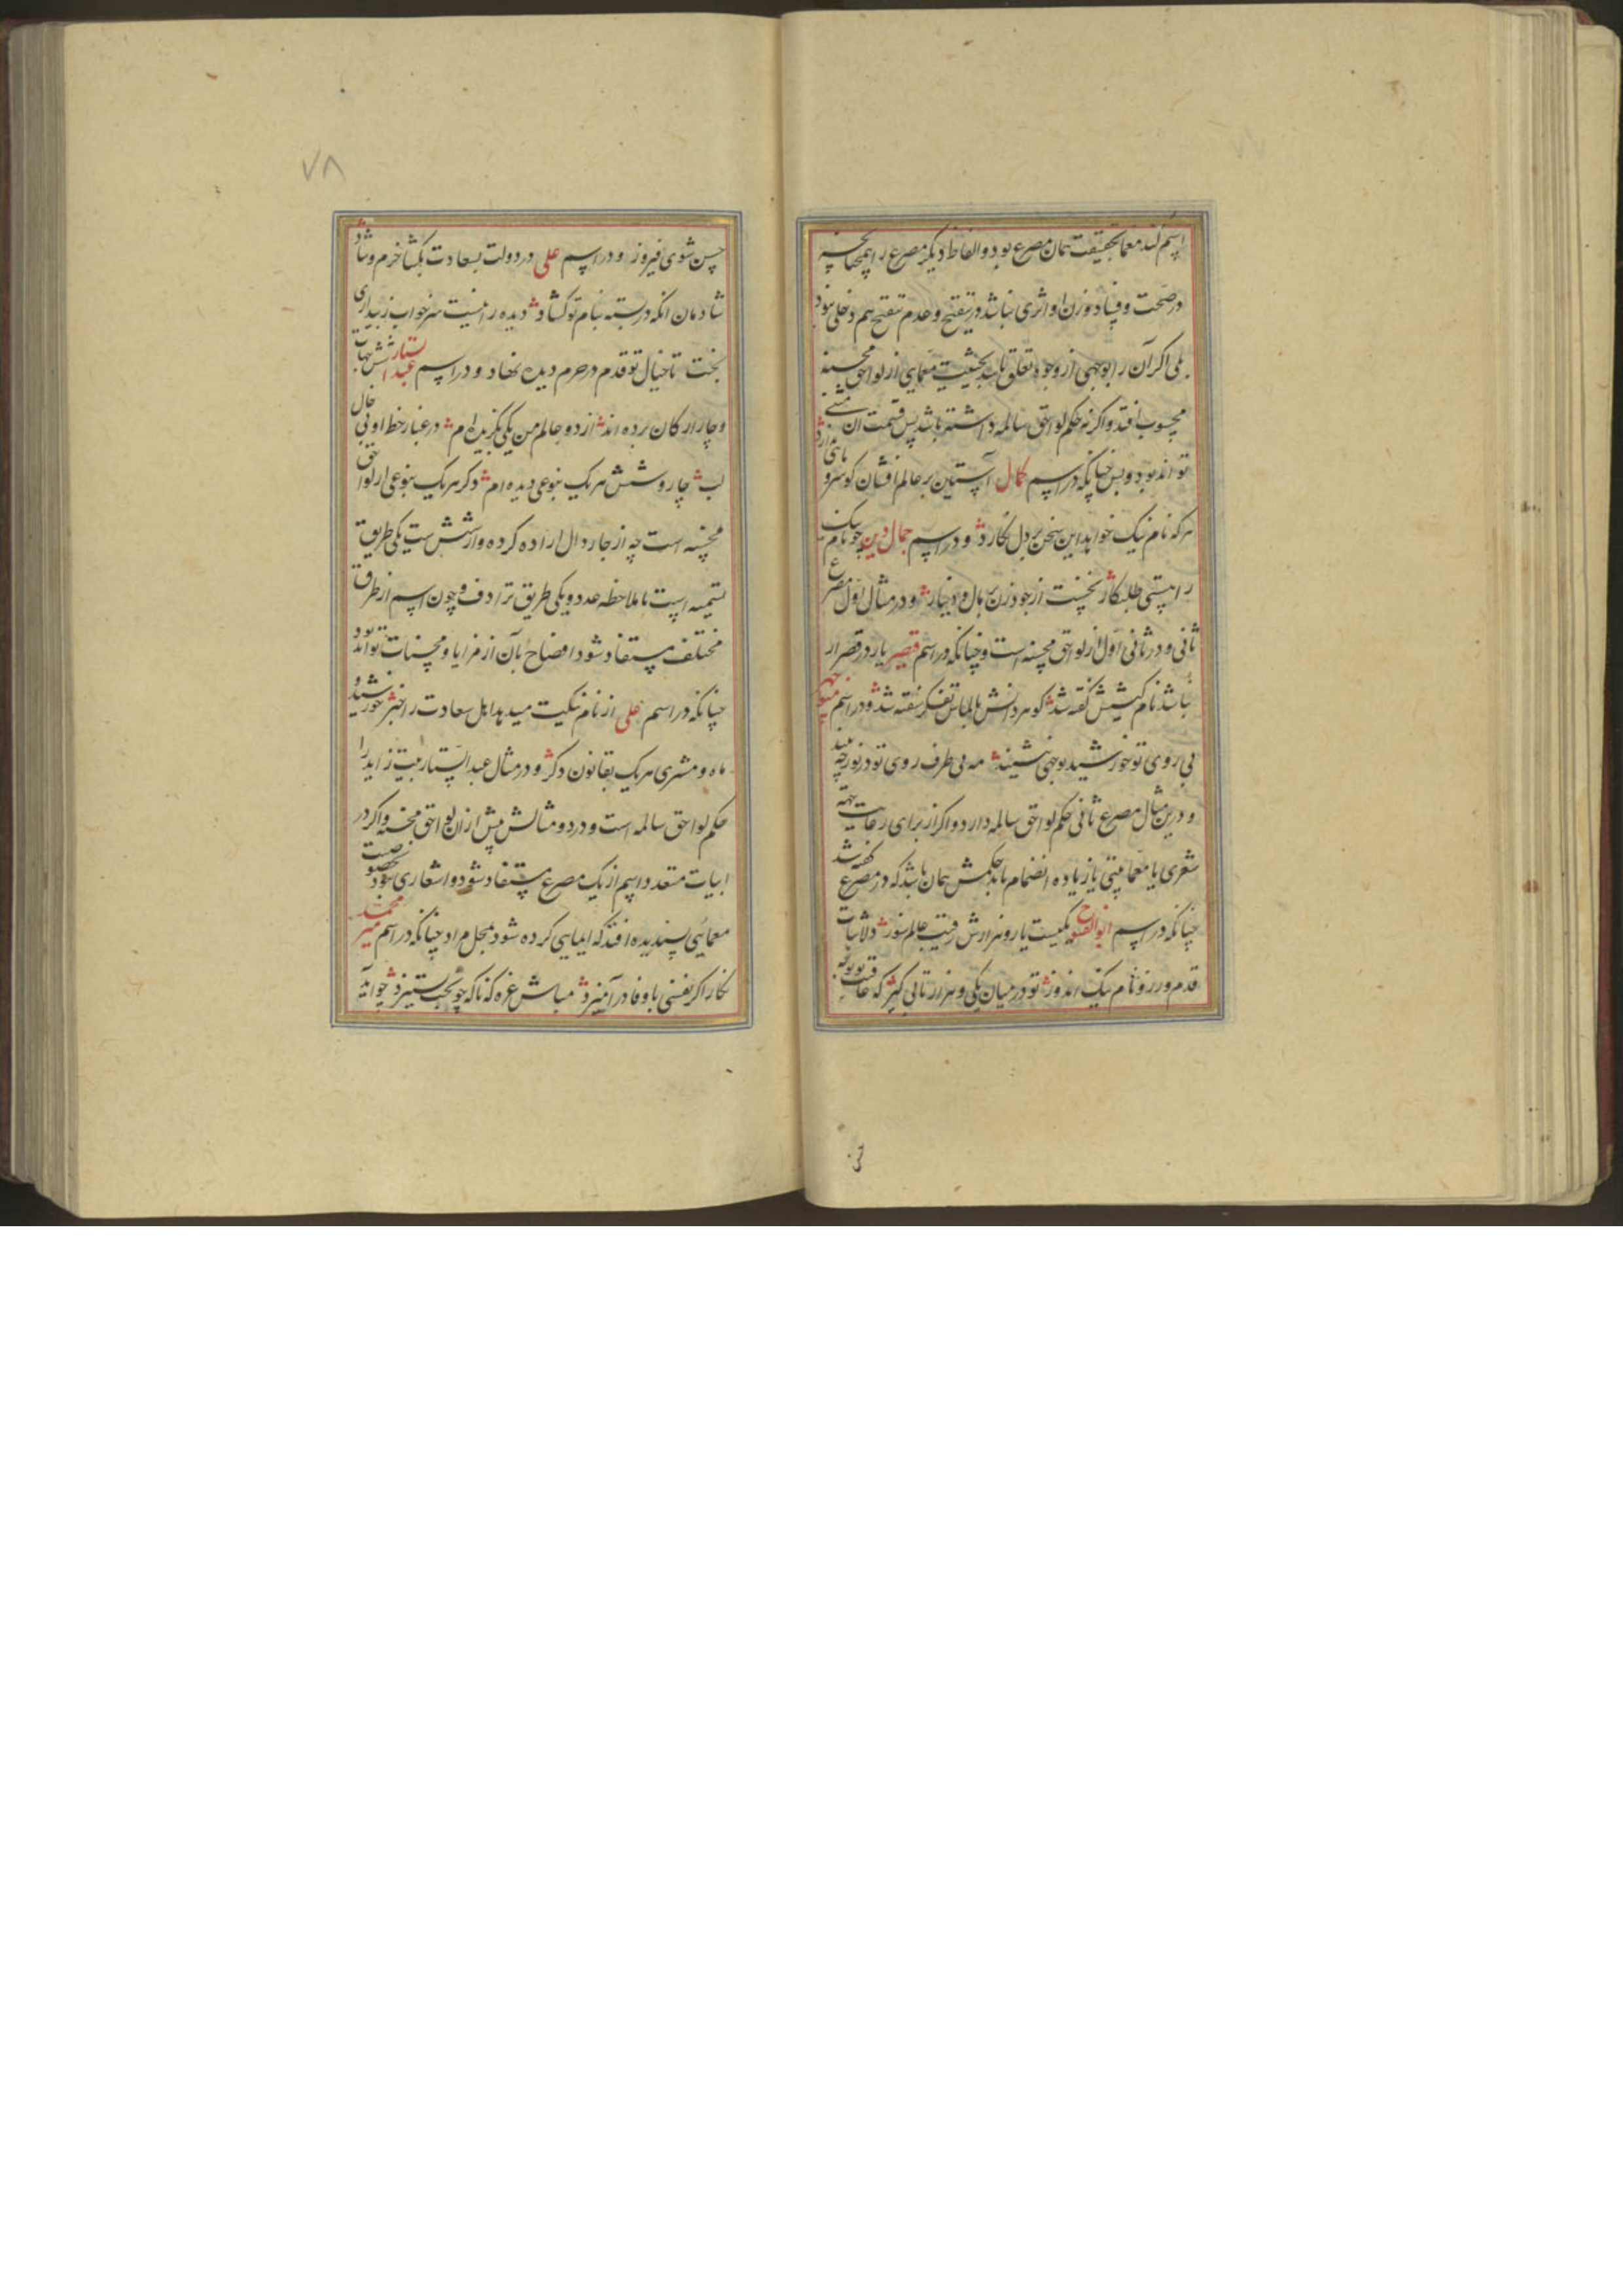 اسم کند معما بحقیقت همان مصرع بود و الفاظ دیگر مصرع را همچنانچه
در صحت و فساد وزن او اثری نباشد در تنقیح و عدم تنقیح هم دخلی نبود
بلی اگر آن را بوجهی از وجوه تعلق باشد بحیثیت معمای از لواحق محسنه
محسوب افتد و اگر نه حکم لواحق سالمه داشته باشد پس قسمت آن
تواند بود و بس چنانکه در اسم کمال آستین بر عالم افشان کو سرو
هر که نام نیک خواهد این سخن بر دل نگارد و در اسم جمال دین چو نام نیک
را هستی طلبکار نخست از جود زن بر مال و دینار و در مثال اول مصرع
ثانی و در ثانی اول از لواحق محسنه است و چنانکه در اسم قیصر یار در قصر ار
نباشد نام کیشش گفته شد گوهر دانش بالماس تفکر سفته شد و در اسم منوچهر
بی روی تو خورشید بوجهی نشیند مه بی طرف روی تو در نور چه بیند
و درین مثال مصرع ثانی حکم لواحق سالمه دارد و اگر از برای رعایت تتمه
شعری یا معما بیتی یا زیاده انضمام یابد حکمش همان باشد که در مصرع گفته شد
چنانکه در اسم ابوالفتح یکیست یار و هزارش رقیب عالم سوز دلا ثبات
قدم ورز و نام نیک اندوز تو در میان یکی و هزار تابی گیر که عاقبت
۷۸
حسن شوی فیروز و در اسم علی در دولت بسعادت بگشا خرم و شاد
شادمان انکه در بسته بنام تو گشاد دیده را نیست سر خواب ز بیداری
بخت تا خیال تو قدم در حرم دیده نهاد و در اسم عبد الستار شش جهات
و چار ارکان برده اند از دو عالم من یکی بگزیده ام در غبار خط او بی خال
لب چار و شش هر یک بنوعی دیده ام ذکر هر یک بنوعی از لواحق
محسنه است چه از چار دال اراده کرده و از شش ست یکی طریق
تسمیه است با ملاحظه عدد و یکی طریق ترادف و چون اسم از طرق
مختلف مستفاد شود افصاح بآن از مزایا و محسنات تواند بود
چنانکه در اسم علی از نام نکیت میدهد اهل سعادت را خبر خورشید و
ماه و مشتری هر یک بقانون دگر و در مثال عبد الستار بیت زاید را
حکم لواحق سالمه است و در دو مثالش پیش از آن لواحق محسنه و اگر در
ابیات متعدد اسم از یک مصرع مستفاد شود و اشعاری بخصوصیت
معمایی پسندیده افتد که ایمایی کرده شود بمحل مراد چنانکه در اسم میر محمد
نگار اگر نفسی با وفا در آمیزد مباش غره که ناگه چو بخت بستیزد چو آید